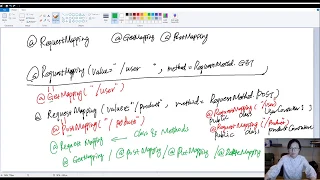 @RequestMapping @GetMapping @PostMapping
@RequestMapping(value="/user", method=RequestMethod.GET)
@GetMapping("/user")
@RequestMapping(value="/product", method=RequestMethod.POST)
@PostMapping("/product")
@RequestMapping("/user")
public class UserController {
@RequestMapping("/product")
public class
@Request Mapping ← Class & Methods
@GetMapping / @PostMapping / @PutMapping / @DeleteMapping